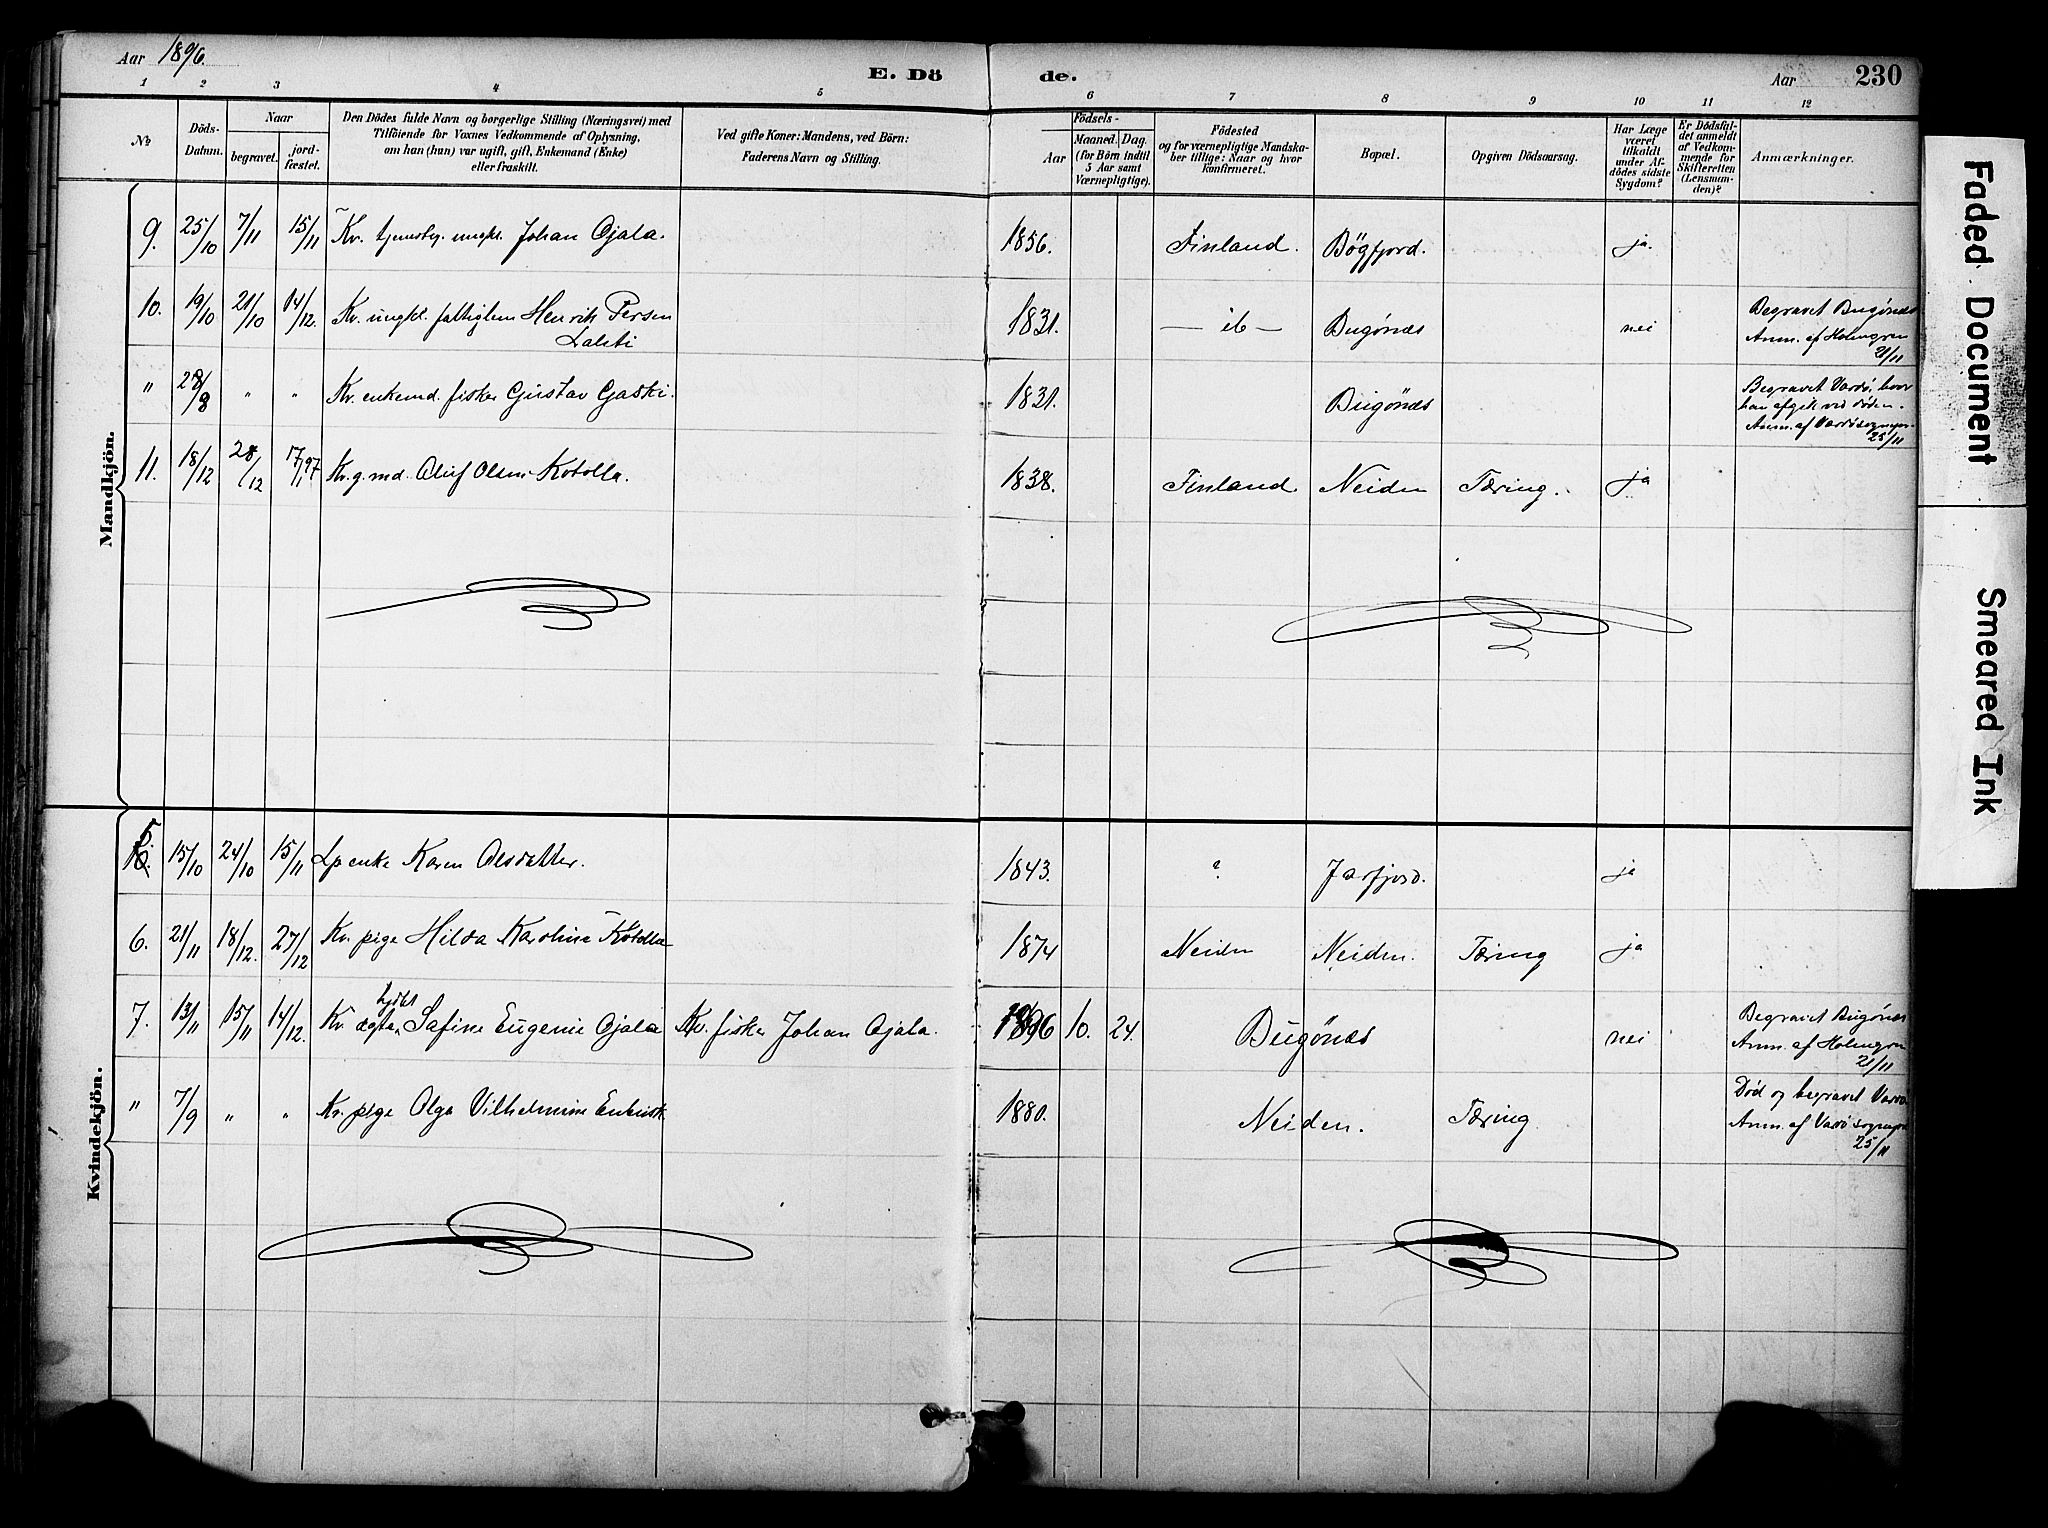 Aar 1896.
E. Dö de.
Aar
230
1 2 3 4 5 6 7 8 9 10 11 12
No
Döds-Datum.
Naar
begravet.
jord-fæstet.
Den Dödes fulde Navn og borgerlige Stilling (Næringsvei) med
Tilföiende for Voxnes Vedkommende af Oplysning,
om han (hun) var ugift, gift, Enkemand (Enke)
eller fraskilt.
Ved gifte Koner: Mandens, ved Börn:
Faderens Navn og Stilling.
Födsels-
Aar
Maaned. Dag.
(for Börn indtil
5 Aar samt
Værnepligtige).
Födested
og for værnepligtige Mandska-
ber tillige: Naar og hvor
konfirmeret.
Bopæl.
Opgiven Dödsaarsag.
Har Læge
været
tilkaldt
under Af-
dödes sidste
Sygdom?
Er Dödsfal-
det anmeldt
af Vedkom-
mende for
Skifteretten
(Lensman-
den)?
Anmærkninger.
Mandkjön.
9. 25/10 7/11 15/11 Kv. tjenestg. ungk. Johan Ojala. 1856. Finland. Bögfjord. ja.
10. 19/10 21/10 14/12. Kv. ungk. fattiglem Henrik Persen 1831. — ib — Bugönæs nei Begravet Bugönæs
Lahti Anm. af Holmgren
21/11
" 28/8 " " Kv. enkemd. fisker Gustav Gaski. 1831. Bugönæs Begravet Vardö, hvor
han afgik ved döden.
Anm. af Vardö sognepr.
25/11
11. 18/12 28/12 17/1 97 Kv. g. md. Oluf Olsen Kotolla. 1838. Finland. Neiden Tæring. ja
Kvindekjön.
5. 15/10 24/10 15/11 Lp enke Karen Olsdatter. 1843. ? Jarfjord. ja
6. 21/11 18/12. 27/12 Kv. pige Hilda Karoline Kotolla 1874 Neiden Neiden. Tæring ja
7. 13/11 15/11 14/12. Kv. ægtef. Safine Eugenie Ojala Kv. fisker Johan Ojala. 1896 10. 24. Bugönæs nei Begravet Bugönæs
Anm. af Holmgren
21/11
" 7/9 " " Kv. pige Olga Vilhelmine 1880. Neiden. Tæring Död og begravet Vardö
Anm. af Vardö sognepr.
25/11
Faded Document
Smeared Ink